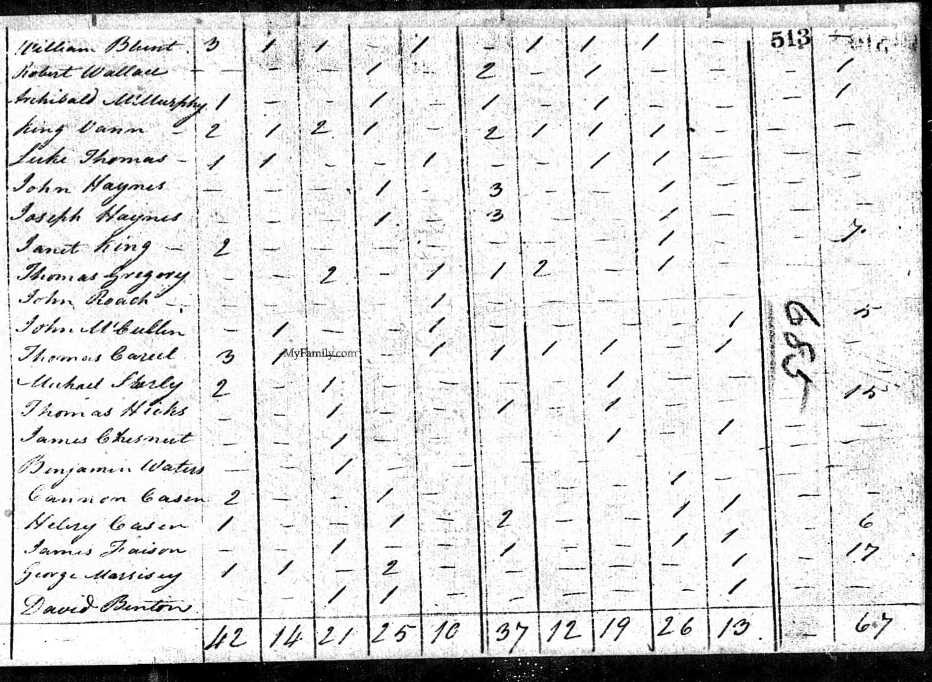 William Blunt 3 1 1 - 1 - 1 1 1 - 513 -
Robert Wallace - - - 1 - 2 - 1 - - - 1
Archibald McMurphy 1 - - 1 - 1 - 1 - - - 1
King Vann - 2 1 2 1 - 2 1 1 1 - - -
Luke Thomas - 1 1 - - 1 - - 1 1 - - -
John Haynes - - - 1 - 3 - - 1 - - -
Joseph Haynes - - - 1 - 3 - - 1 - - -
Janet King - 2 - - - - - - - 1 - - 7
Thomas Gregory - - 2 - 1 1 2 - 1 - - -
John Roach - - - - - 1 - - - - - - 5
John McCullin - 1 - - 1 - - - - 1 - -
Thomas 3 1 - - 1 1 1 1 - 1 - -
MyFamily.com
685
Michael 2 - 1 - - - - 1 - - - 15
Thomas Hicks - - 1 - - 1 - 1 - - - -
James Chesnut - - 1 - - - - 1 - 1 - -
Benjamin Waters - - 1 - - - - - - - - -
Cannon Casen 2 - - 1 - - - - 1 - - -
Casen 1 - - 1 - 2 - - 1 1 - 6
James Faison - - 1 - - 1 - - 1 1 - 17
George 1 1 - 2 - - - - - 1 - -
David Benton - - 1 1 - - - - - 1 - -
42 14 21 25 10 37 12 19 26 13 - 67